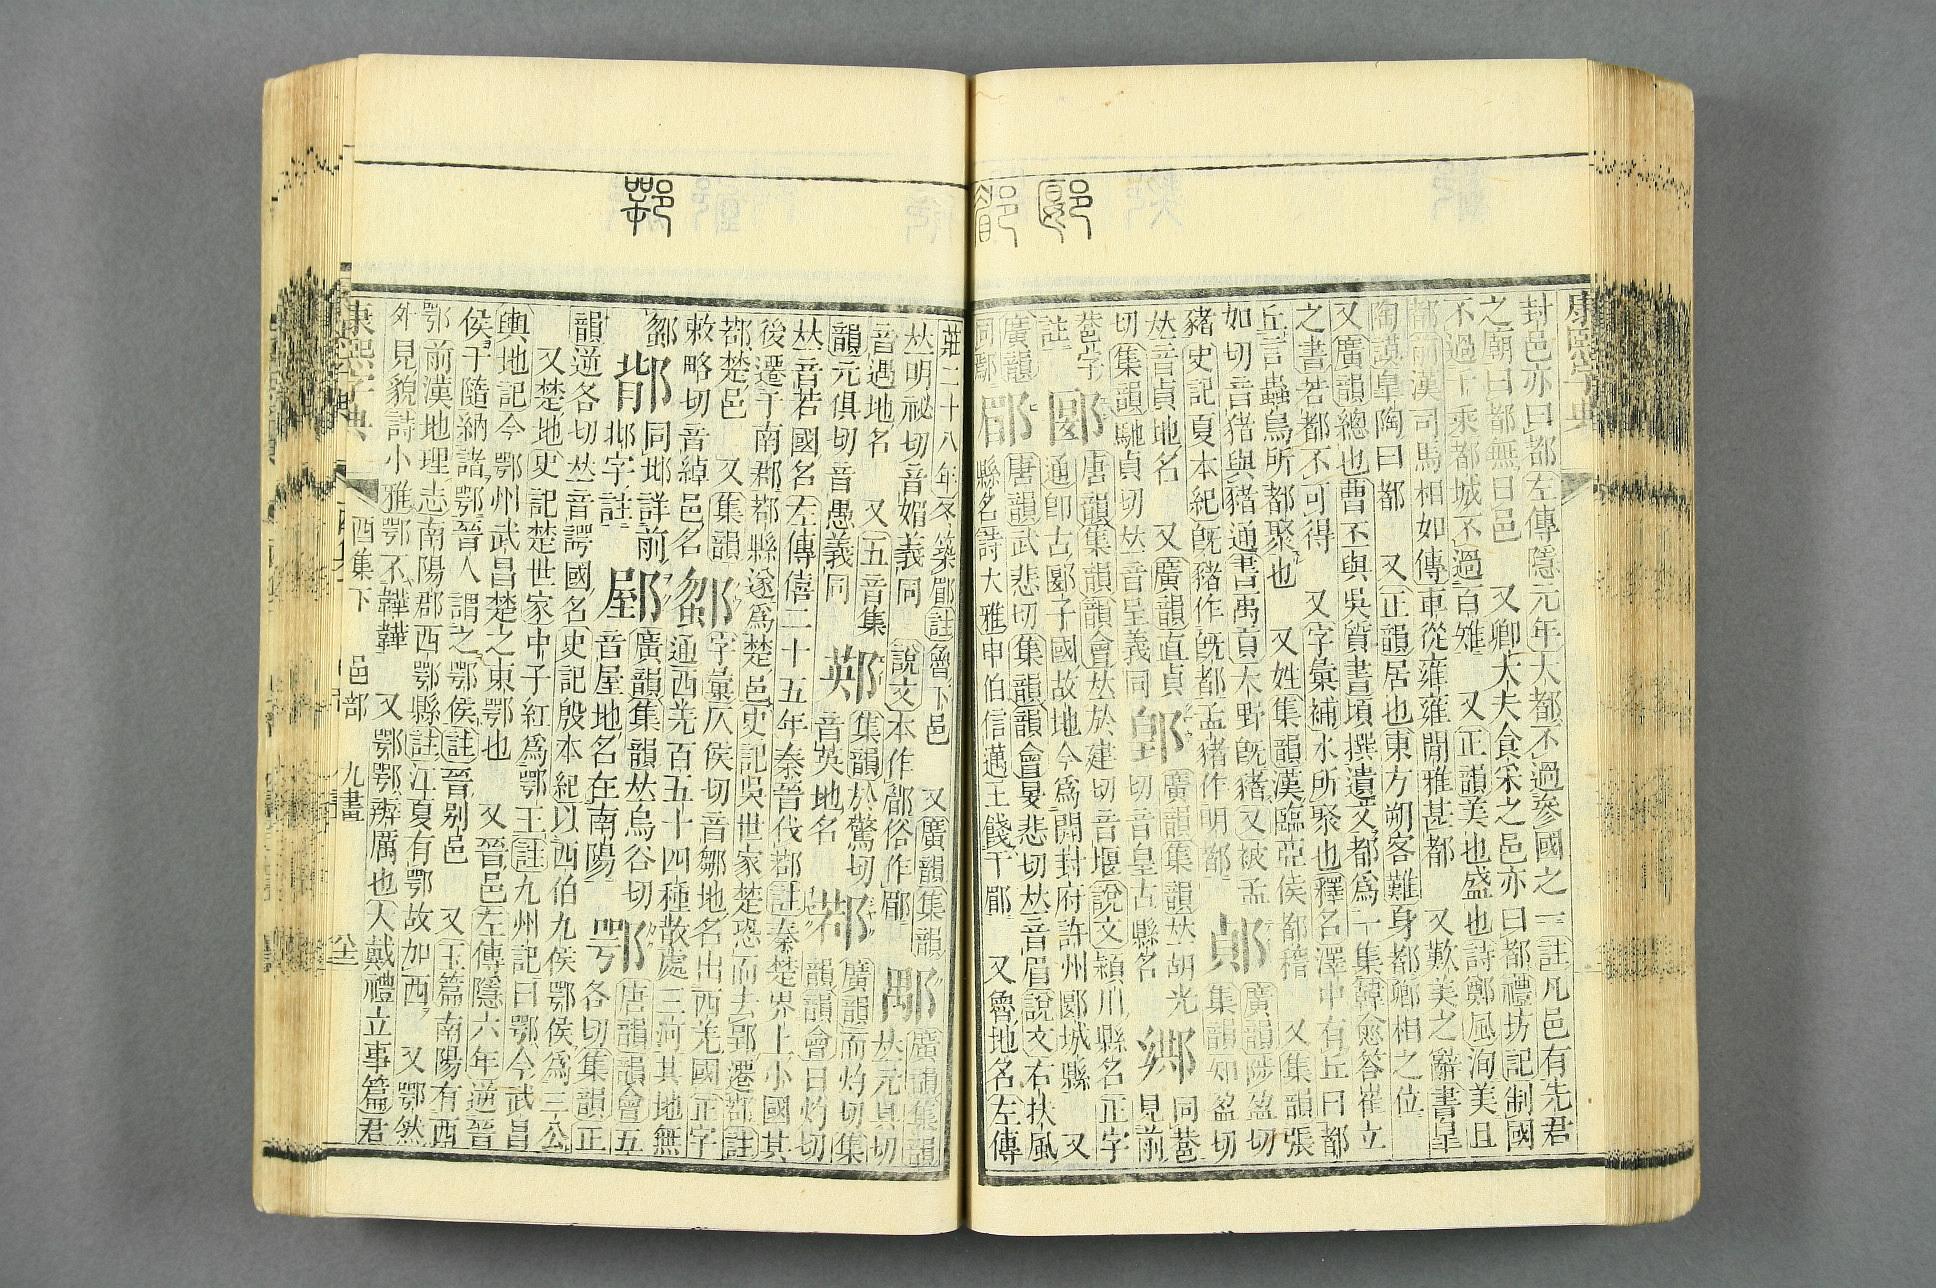 郾
郿
康熙字典
封邑亦曰都左傳隱元年大都不過參國之一註凡邑有先君
之廟曰都無曰邑 又卿大夫食采之邑亦曰都禮坊記制國
不過千乘都城不過百雉 又正韻美也盛也詩鄭風洵美且
都前漢司馬相如傳車從雍雍閒雅甚都 又歎美之辭書皐
陶謨皐陶曰都 又正韻居也東方朔客難身都卿相之位
又廣韻總也曹丕與吳質書頃撰遺文都爲一集韓愈答崔立
之書若都不可得 又字彙補水所聚也釋名澤中有丘曰都
丘言蟲鳥所都聚也 又姓集韻漢臨亞侯都稽 又集韻張
如切音猪與豬通書禹貢大野旣豬又被孟 廣韻陟盈切
豬史記夏本紀旣豬作旣都孟豬作明都 集韻知盈切
𠀤音貞地名 又廣韻直貞 廣韻集韻𠀤胡光 鄕 同巷
切集韻馳貞切𠀤音呈義同 切音皇古縣名 見前
巷字 郾 唐韻集韻韻會𠀤於建切音堰說文潁川縣名正字 又
註 通卽古郾子國故地今爲開封府許州郾城縣
廣韻 郿 唐韻武悲切集韻韻會旻悲切𠀤音眉說文右扶風
同鄢 縣名詩大雅申伯信邁王餞于郿 又魯地名左傳
鄂
莊二十八年冬築郿註魯下邑 又廣韻集韻 鄅 廣韻集韻
𠀤明祕切音媚義同 說文本作 俗作郿 𠀤元具切
音遇地名 又五音集 集韻於驚切 鄀 廣韻而灼切集
韻元俱切音愚義同 音英地名 韻韻會日灼切
𠀤音若國名左傳僖二十五年秦晉伐鄀註秦楚界上小國其
後遷于南郡鄀縣遂爲楚邑史記吳世家楚恐而去郢遷鄀註
鄀楚邑 又集韻 字彙仄侯切音鄒地名出西羌國正字
敕略切音綽邑名 通西羌百五十四種散處三河其地無
同 詳前 廣韻集韻𠀤烏谷切 鄂 唐韻韻會五
字註 音屋地名在南陽 各切集韻正
韻逆各切𠀤音諤國名史記殷本紀以西伯九侯鄂侯爲三公
又楚地史記楚世家中子紅爲鄂王註九州記曰鄂今武昌
輿地記今鄂州武昌楚之東鄂也 又晉邑左傳隱六年逆晉
侯于隨納諸鄂晉人謂之鄂侯註晉别邑 又玉篇南陽有西
鄂前漢地理志南陽郡西鄂縣註江夏有鄂故加西 又鄂然
外見貌詩小雅鄂不韡韡 又鄂鄂辨厲也大戴禮立事篇君
康熙字典 酉集下 邑部 九畫